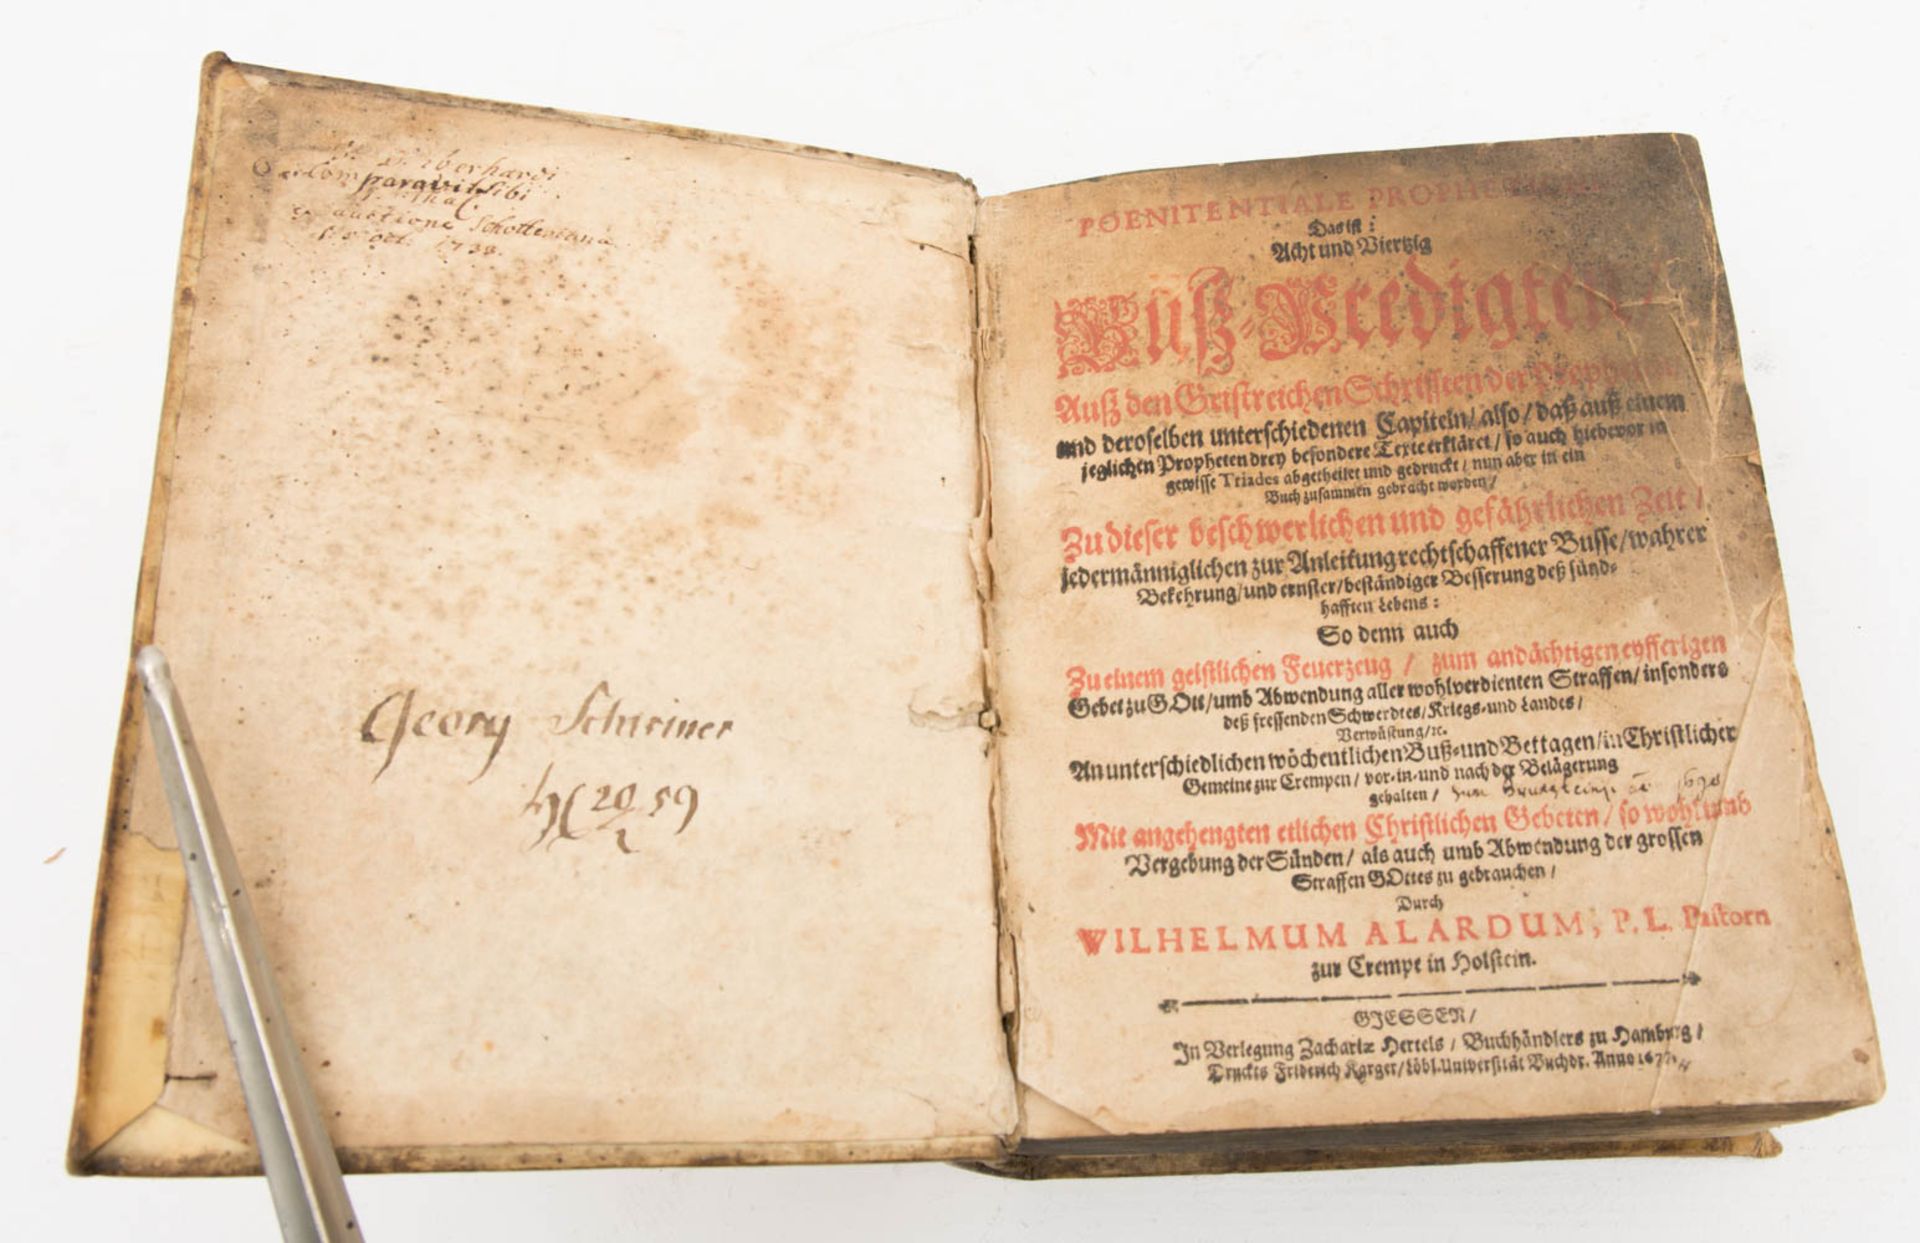 Eberhardi
Comparavit Sibi
auctione Schotteliana
Oct. 1738.
Georg Schreiner
20 59
POENITENTIALE PROPHETICUM
Das ist:
Acht und Viertzig
Büß-Predigten/
Auß den Geistreichen Schrifften der Propheten
und deroselben unterschiedenen Capiteln/ also/ daß auß einem
jeglichen Propheten drey besondere Texte erkläret/ so auch hiebevor in
gewisse Triades abgetheilet und gedruckt/ nun aber in ein
Buch zusammen gebracht worden/
Zu dieser beschwerlichen und gefährlichen Zeit/
jedermänniglichen zur Anleitung rechtschaffener Busse/ wahrer
Bekehrung/ und ernster/ beständiger Besserung deß sünd-
hafften Lebens:
So denn auch
Zu einem geistlichen Feuerzeug/ zum andächtigen eyfferigen
Gebet zu GOtt/ umb Abwendung aller wohlverdienten Straffen/ insonders
deß fressenden Schwerdtes/ Kriegs- und Landes/
Verwüstung/ ꝛc.
An unterschiedlichen wöchentlichen Buß- und Bettagen/ in Christlicher
Gemeine zur Crempen/ vor- in- und nach der Belägerung
gehalten/
Mit angehengten etlichen Christlichen Gebeten/ so wohl umb
Vergebung der Sünden/ als auch umb Abwendung der grossen
Straffen GOttes zu gebrauchen/
Durch
WILHELMUM ALARDUM, P. L. Pastorn
zur Crempe in Holstein.
GIESSEN/
In Verlegung Zachariæ Hertels/ Buchhändlers zu Hamburg/
Druckts Friderich Karger/ Löbl. Universität Buchdr. Anno 1677.